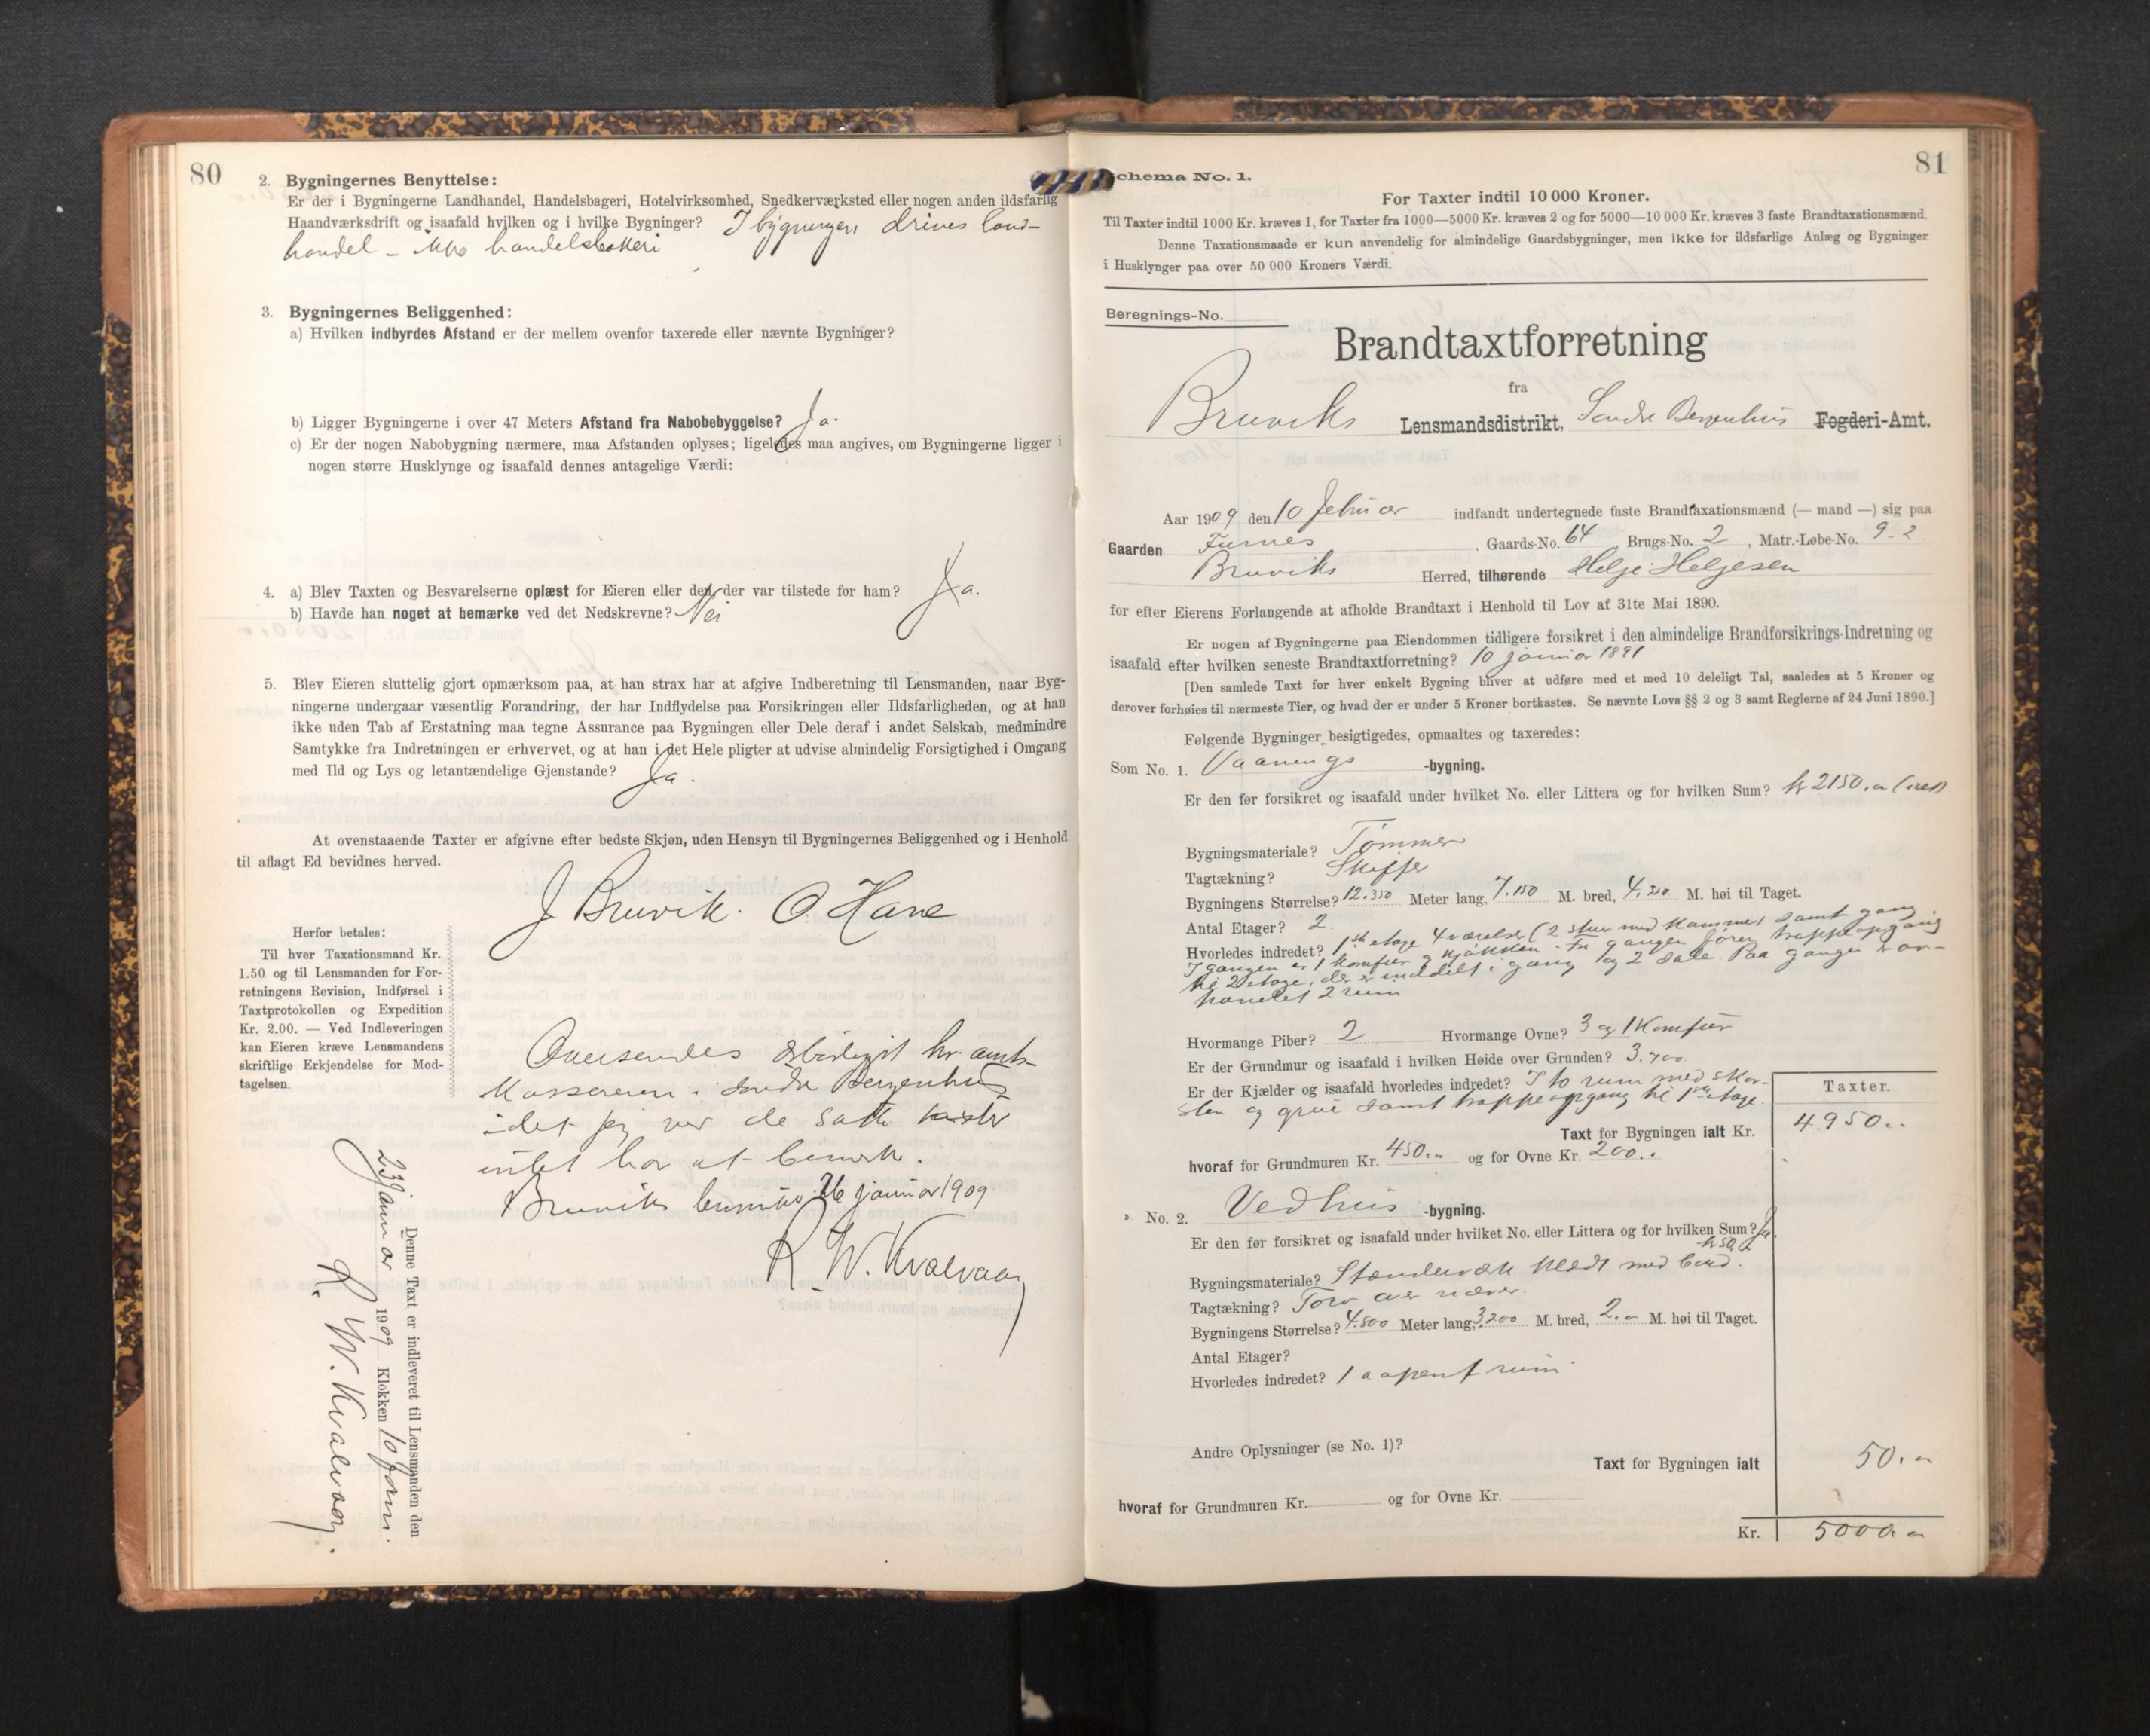 80
2. Bygningernes Benyttelse:
Er der i Bygningerne Landhandel, Handelsbageri, Hotelvirksomhed, Snedkerværksted eller nogen anden ildsfarlig
Haandværksdrift og isaafald hvilken og i hvilke Bygninger? I bygningen drives land-
handel – ikke handelsbakeri
3. Bygningernes Beliggenhed:
a) Hvilken indbyrdes Afstand er der mellem ovenfor taxerede eller nævnte Bygninger?
b) Ligger Bygningerne i over 47 Meters Afstand fra Nabobebyggelse? Ja.
c) Er der nogen Nabobygning nærmere, maa Afstanden oplyses; ligeledes maa angives, om Bygningerne ligger i
nogen større Husklynge og isaafald dennes antagelige Værdi:
4. a) Blev Taxten og Besvarelserne oplæst for Eieren eller den, der var tilstede for ham? Ja.
b) Havde han noget at bemærke ved det Nedskrevne? Nei
5. Blev Eieren sluttelig gjort opmærksom paa, at han strax har at afgive Indberetning til Lensmanden, naar Byg-
ningerne undergaar væsentlig Forandring, der har Indflydelse paa Forsikringen eller Ildsfarligheden, og at han
ikke uden Tab af Erstatning maa tegne Assurance paa Bygningen eller Dele deraf i andet Selskab, medmindre
Samtykke fra Indretningen er erhvervet, og at han i det Hele pligter at udvise almindelig Forsigtighed i Omgang
med Ild og Lys og letantændelige Gjenstande? Ja.
At ovenstaaende Taxter er afgivne efter bedste Skjøn, uden Hensyn til Bygningernes Beliggenhed og i Henhold
til aflagt Ed bevidnes herved.
J Bruvik. O Hane
Herfor betales:
Til hver Taxationsmand Kr.
1.50 og til Lensmanden for For-
retningens Revision, Indførsel i
Taxtprotokollen og Expedition
Kr. 2.00. — Ved Indleveringen
kan Eieren kræve Lensmandens
skriftlige Erkjendelse for Mod-
tagelsen.
Oversendes ærbødigst hr. amts-
kassereren i Søndre Bergenhus
idet jeg ved de satte takster
intet har at bemerke.
Bruviks 26 januar 1909
R. W. Kvalvaag
Denne Taxt er indleveret til Lensmanden den
23 januar 1909 Klokken 10 form.
R. W. Kvalvaag.
81
chema No. 1.
For Taxter indtil 10 000 Kroner.
Til Taxter indtil 1000 Kr. kræves 1, for Taxter fra 1000—5000 Kr. kræves 2 og for 5000—10 000 Kr. kræves 3 faste Brandtaxationsmænd.
Denne Taxationsmaade er kun anvendelig for almindelige Gaardsbygninger, men ikke for ildsfarlige Anlæg og Bygninger
i Husklynger paa over 50 000 Kroners Værdi.
Beregnings-No.
Brandtaxtforretning
fra
Bruviks Lensmandsdistrikt, Søndre Bergenhus Fogderi-Amt.
Aar 1909 den 10 februar indfandt undertegnede faste Brandtaxationsmænd (— mand —) sig paa
Gaarden Furnes, Gaards-No. 64, Brugs-No. 2, Matr.-Løbe-No. 9-2
Bruviks Herred, tilhørende Helje Heljesen
for efter Eierens Forlangende at afholde Brandtaxt i Henhold til Lov af 31te Mai 1890.
Er nogen af Bygningerne paa Eiendommen tidligere forsikret i den almindelige Brandforsikrings-Indretning og
isaafald efter hvilken seneste Brandtaxtforretning? 10 januar 1891
[Den samlede Taxt for hver enkelt Bygning bliver at udføre med et med 10 deleligt Tal, saaledes at 5 Kroner og
derover forhøies til nærmeste Tier, og hvad der er under 5 Kroner bortkastes. Se nævnte Lovs §§ 2 og 3 samt Reglerne af 24 Juni 1890.]
Følgende Bygninger besigtigedes, opmaaltes og taxeredes:
Som No. 1. Vaanings -bygning.
Er den før forsikret og isaafald under hvilket No. eller Littera og for hvilken Sum? kr 2150.
Bygningsmateriale? Tømmer
Tagtækning? Skiffer
Bygningens Størrelse? 12.350 Meter lang, 7.150 M. bred, 4.250 M. høi til Taget.
Antal Etager? 2.
Hvorledes indredet? 1ste etage 4 værelser (2 stuer med kammer samt gang.
I gangen er 1 komfur og kjøkken. Fra gangen fører trappeopgang
til 2 etage, der er inddelt i gang og 2 sale. Paa gangen er av-
panelet 2 rum
Hvormange Piber? 2 Hvormange Ovne? 3 og 1 Komfur
Er der Grundmur og isaafald i hvilken Høide over Grunden? 3.700
Er der Kjælder og isaafald hvorledes indredet? I to rum med skor-
sten og grue samt trappeopgang til 1ste etage.
Taxter.
Taxt for Bygningen ialt Kr. 4950..
hvoraf for Grundmuren Kr. 450.. og for Ovne Kr. 200..
" No. 2. Vedhus -bygning.
Er den før forsikret og isaafald under hvilket No. eller Littera og for hvilken Sum? Ja.
kr 50.
Bygningsmateriale? Stenderverk klædt med bord.
Tagtækning? Torv over næver.
Bygningens Størrelse? 4.800 Meter lang, 3.200 M. bred, 2.. M. høi til Taget.
Antal Etager?
Hvorledes indredet? 1 aapent rum.
Andre Oplysninger (se No. 1)?
Taxt for Bygningen ialt 50..
hvoraf for Grundmuren Kr. og for Ovne Kr.
Kr. 5000..